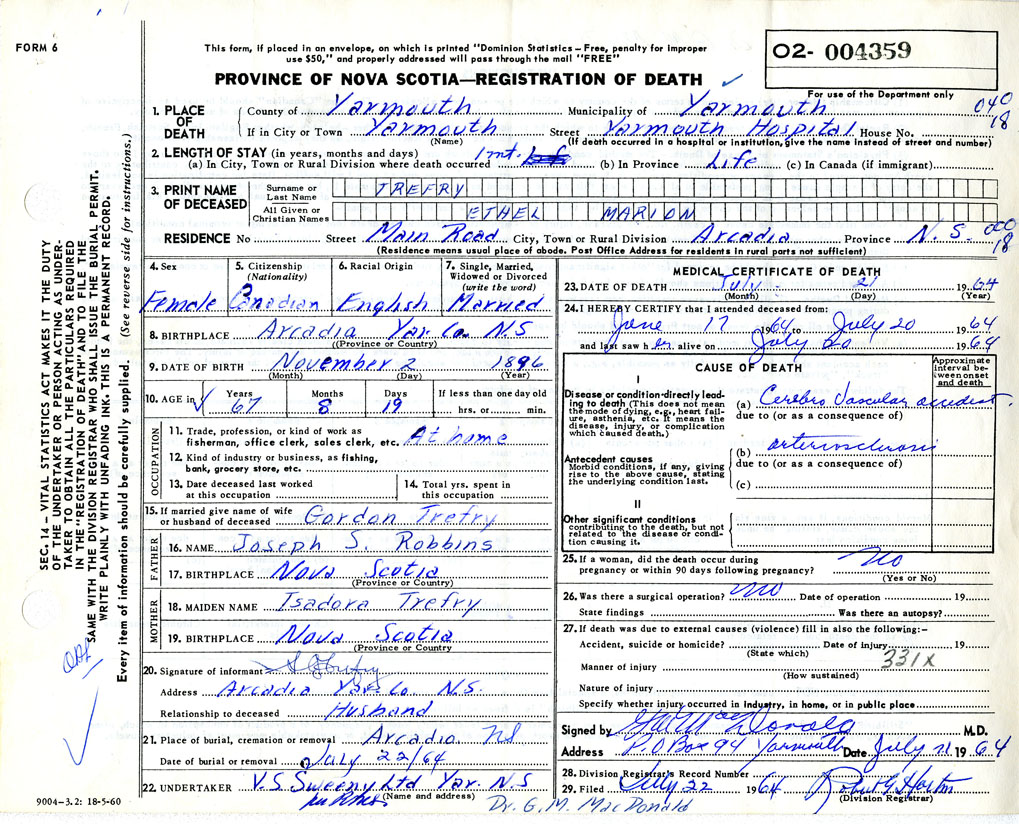 FORM 6
This form, if placed in an envelope, on which is printed "Dominion Statistics – Free, penalty for improper
use $50," and properly addressed will pass through the mail "FREE"
PROVINCE OF NOVA SCOTIA—REGISTRATION OF DEATH
O2- 004359
For use of the Department only
1. PLACE OF DEATH
County of Yarmouth Municipality of Yarmouth 040
18
If in City or Town Yarmouth Street Yarmouth Hospital House No.
(Name) (If death occurred in a hospital or institution, give the name instead of street and number)
2. LENGTH OF STAY (in years, months and days)
(a) In City, Town or Rural Division where death occurred 1 mt. (b) In Province Life (c) In Canada (if immigrant)
3. PRINT NAME OF DECEASED
Surname or Last Name TREFRY
All Given or Christian Names ETHEL MARION
RESIDENCE No Street Main Road City, Town or Rural Division Arcadia Province N.S. 000
18
(Residence means usual place of abode. Post Office Address for residents in rural parts not sufficient)
4. Sex Female
5. Citizenship (Nationality) Canadian
6. Racial Origin English
7. Single, Married, Widowed or Divorced (write the word) Married
8. BIRTHPLACE Arcadia Yar. Co. N.S
(Province or Country)
9. DATE OF BIRTH November 2 1896
(Month) (Day) (Year)
10. AGE in Years 67 Months 8 Days 19 If less than one day old hrs. or min.
OCCUPATION
11. Trade, profession, or kind of work as
fisherman, office clerk, sales clerk, etc. At home
12. Kind of industry or business, as fishing,
bank, grocery store, etc.
13. Date deceased last worked
at this occupation
14. Total yrs. spent in
this occupation
15. If married give name of wife
or husband of deceased Gordon Trefry
FATHER
16. NAME Joseph S. Robbins
17. BIRTHPLACE Nova Scotia
(Province or Country)
MOTHER
18. MAIDEN NAME Isadora Trefry
19. BIRTHPLACE Nova Scotia
(Province or Country
20. Signature of informant
Address Arcadia Yar. Co. N.S.
Relationship to deceased Husband
21. Place of burial, cremation or removal Arcadia NS
Date of burial or removal July 22/64
22. UNDERTAKER V.S. Sweeny Ltd Yar. N.S
(Name and address)
MEDICAL CERTIFICATE OF DEATH
23. DATE OF DEATH July 21 1964
(Month) (Day)
24. I HEREBY CERTIFY that I attended deceased from:
June 17 1964 to July 20 1964
and last saw her alive on July 20 1964
CAUSE OF DEATH
Approximate
interval between onset
and death
I
Disease or condition directly leading to death (This does not mean
the mode of dying, e.g., heart failure, asthenia, etc. It means the
disease, injury, or complication
which caused death.)
(a) Cerebro Vascular accident
due to (or as a consequence of)
Antecedent causes
Morbid conditions, if any, giving
rise to the above cause, stating
the underlying condition last.
(b) arteriosclerosis
due to (or as a consequence of)
(c)
II
Other significant conditions
contributing to the death, but not
related to the disease or condition causing it.
25. If a woman, did the death occur during
pregnancy or within 90 days following pregnancy? No
(Yes or No)
26. Was there a surgical operation? No Date of operation 19
State findings Was there an autopsy?
27. If death was due to external causes (violence) fill in also the following:–
Accident, suicide or homicide? Date of injury 19
(State which)
331x
Manner of injury
(How sustained)
Nature of injury
Specify whether injury occurred in Industry, in home, or in public place
Signed by G.M. MacDonald M.D.
Address P.O Box 94 Yarmouth Date July 21 1964
28. Division Registrar's Record Number
29. Filed July 22 1964
(Division Registrar)
Dr. G. M. MacDonald
9004–3.2: 18-5-60
SEC. 14 – VITAL STATISTICS ACT MAKES IT THE DUTY
OF THE UNDERTAKER OR PERSON ACTING AS UNDERTAKER TO OBTAIN ALL THE PARTICULARS REQUIRED
IN THE "REGISTRATION OF DEATH" AND TO FILE THE
SAME WITH THE DIVISION REGISTRAR WHO SHALL ISSUE THE BURIAL PERMIT.
WRITE PLAINLY WITH UNFADING INK. THIS IS A PERMANENT RECORD.
Every item of information should be carefully supplied. (See reverse side for instructions.)